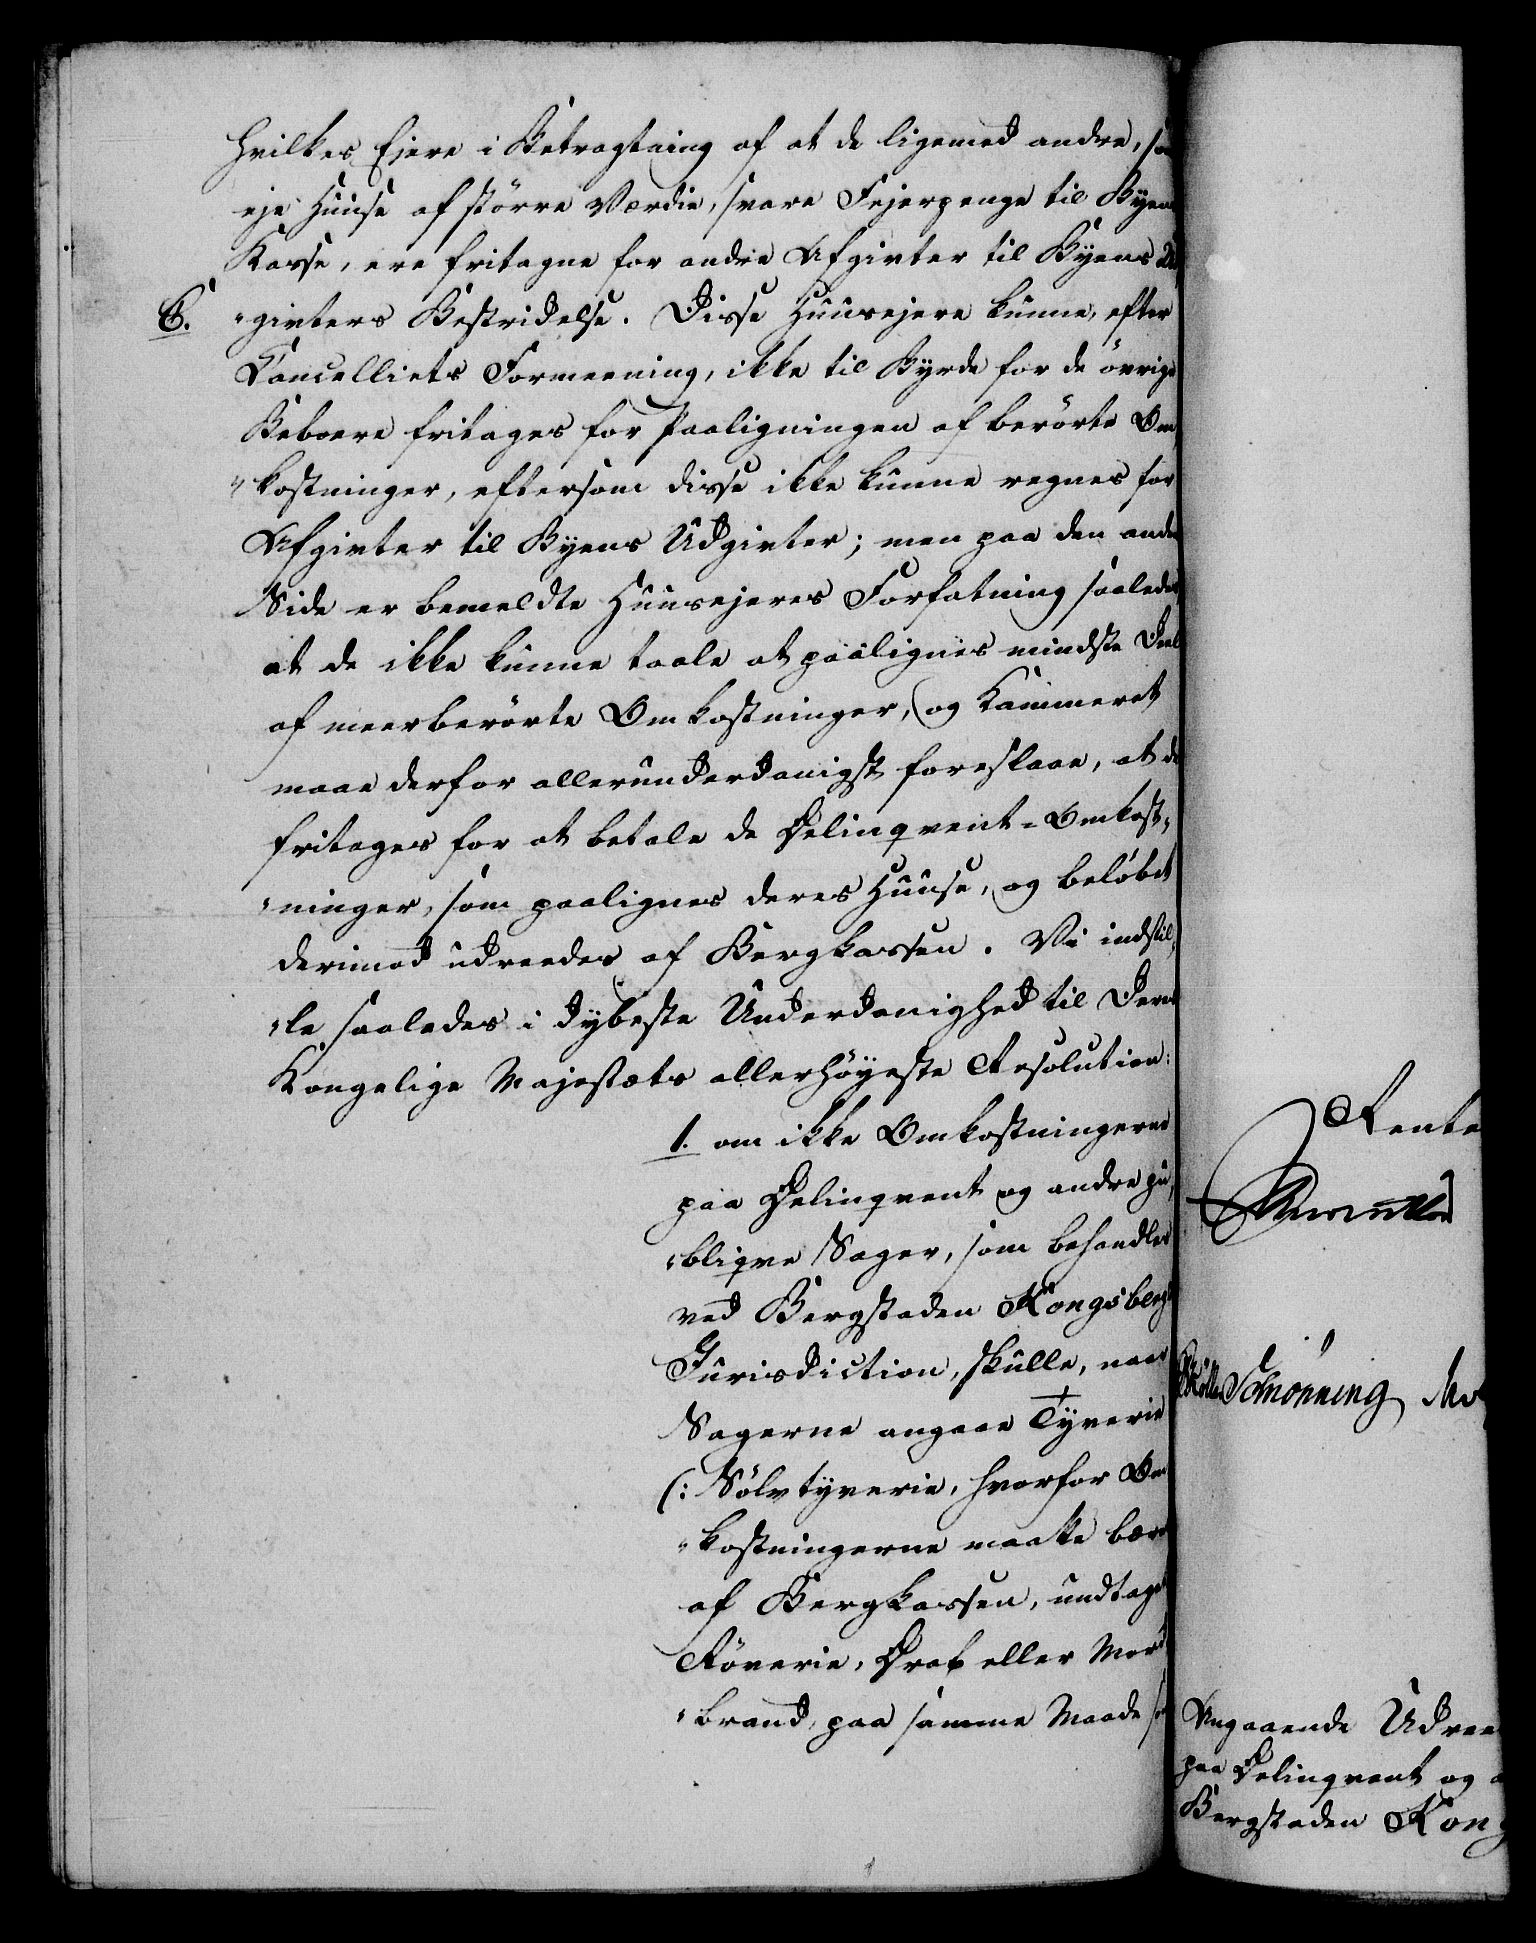 hvilkes Ejere i Betragtning af at de ligemed andre, som
eje Huuse af större Værdie, svare Fejerpenge til Byens
Kasse, ere fritagne for andre Afgivter til Byens Ud
6. "givters Bestridelse. Disse Huusejere kunne, efter
Cancelliets Formeening, ikke til Byrde for de övrige
Beboere fritages for Paaligningen af berörte Om
"kostninger, eftersom disse ikke kunne regnes for
Afgivter til Byens Udgivter; men paa den anden
Side er bemeldte Huusejeres Forfatning saaledes,
at de ikke kunne taale at paalignes mindste Deel
af meerberörte Omkostninger, og Kammeret
maae derfor allerunderdanigst foreslaae, at de
fritages for at betale de Delinqvent-Omkost-
"ninger, som paalignes deres Huuse, og belöbet
derimod udreedes af Bergkassen. Vi indstil,
"le saaledes i dybeste Underdanighed til Deres
Kongelige Majestæts allerhöyeste Resolution:
1. om ikke Omkostningerne
paa Delinqvent og andre pu,
"bliqve Sager, som behandles
ved Bergstaden Kongsbergs
Jurisdiction, skulle, naar
Sagerne angaae Tyverie
(: Sölvtyverie, hvorfor Om
"kostningerne maatte bæres
af Bergkassen, undtaget
Röverie, Drab eller Mord
"brand, paa samme Maade som
Rente
Schönning
Angaaende Udree
paa Delinqvent og a
Bergstaden Kong